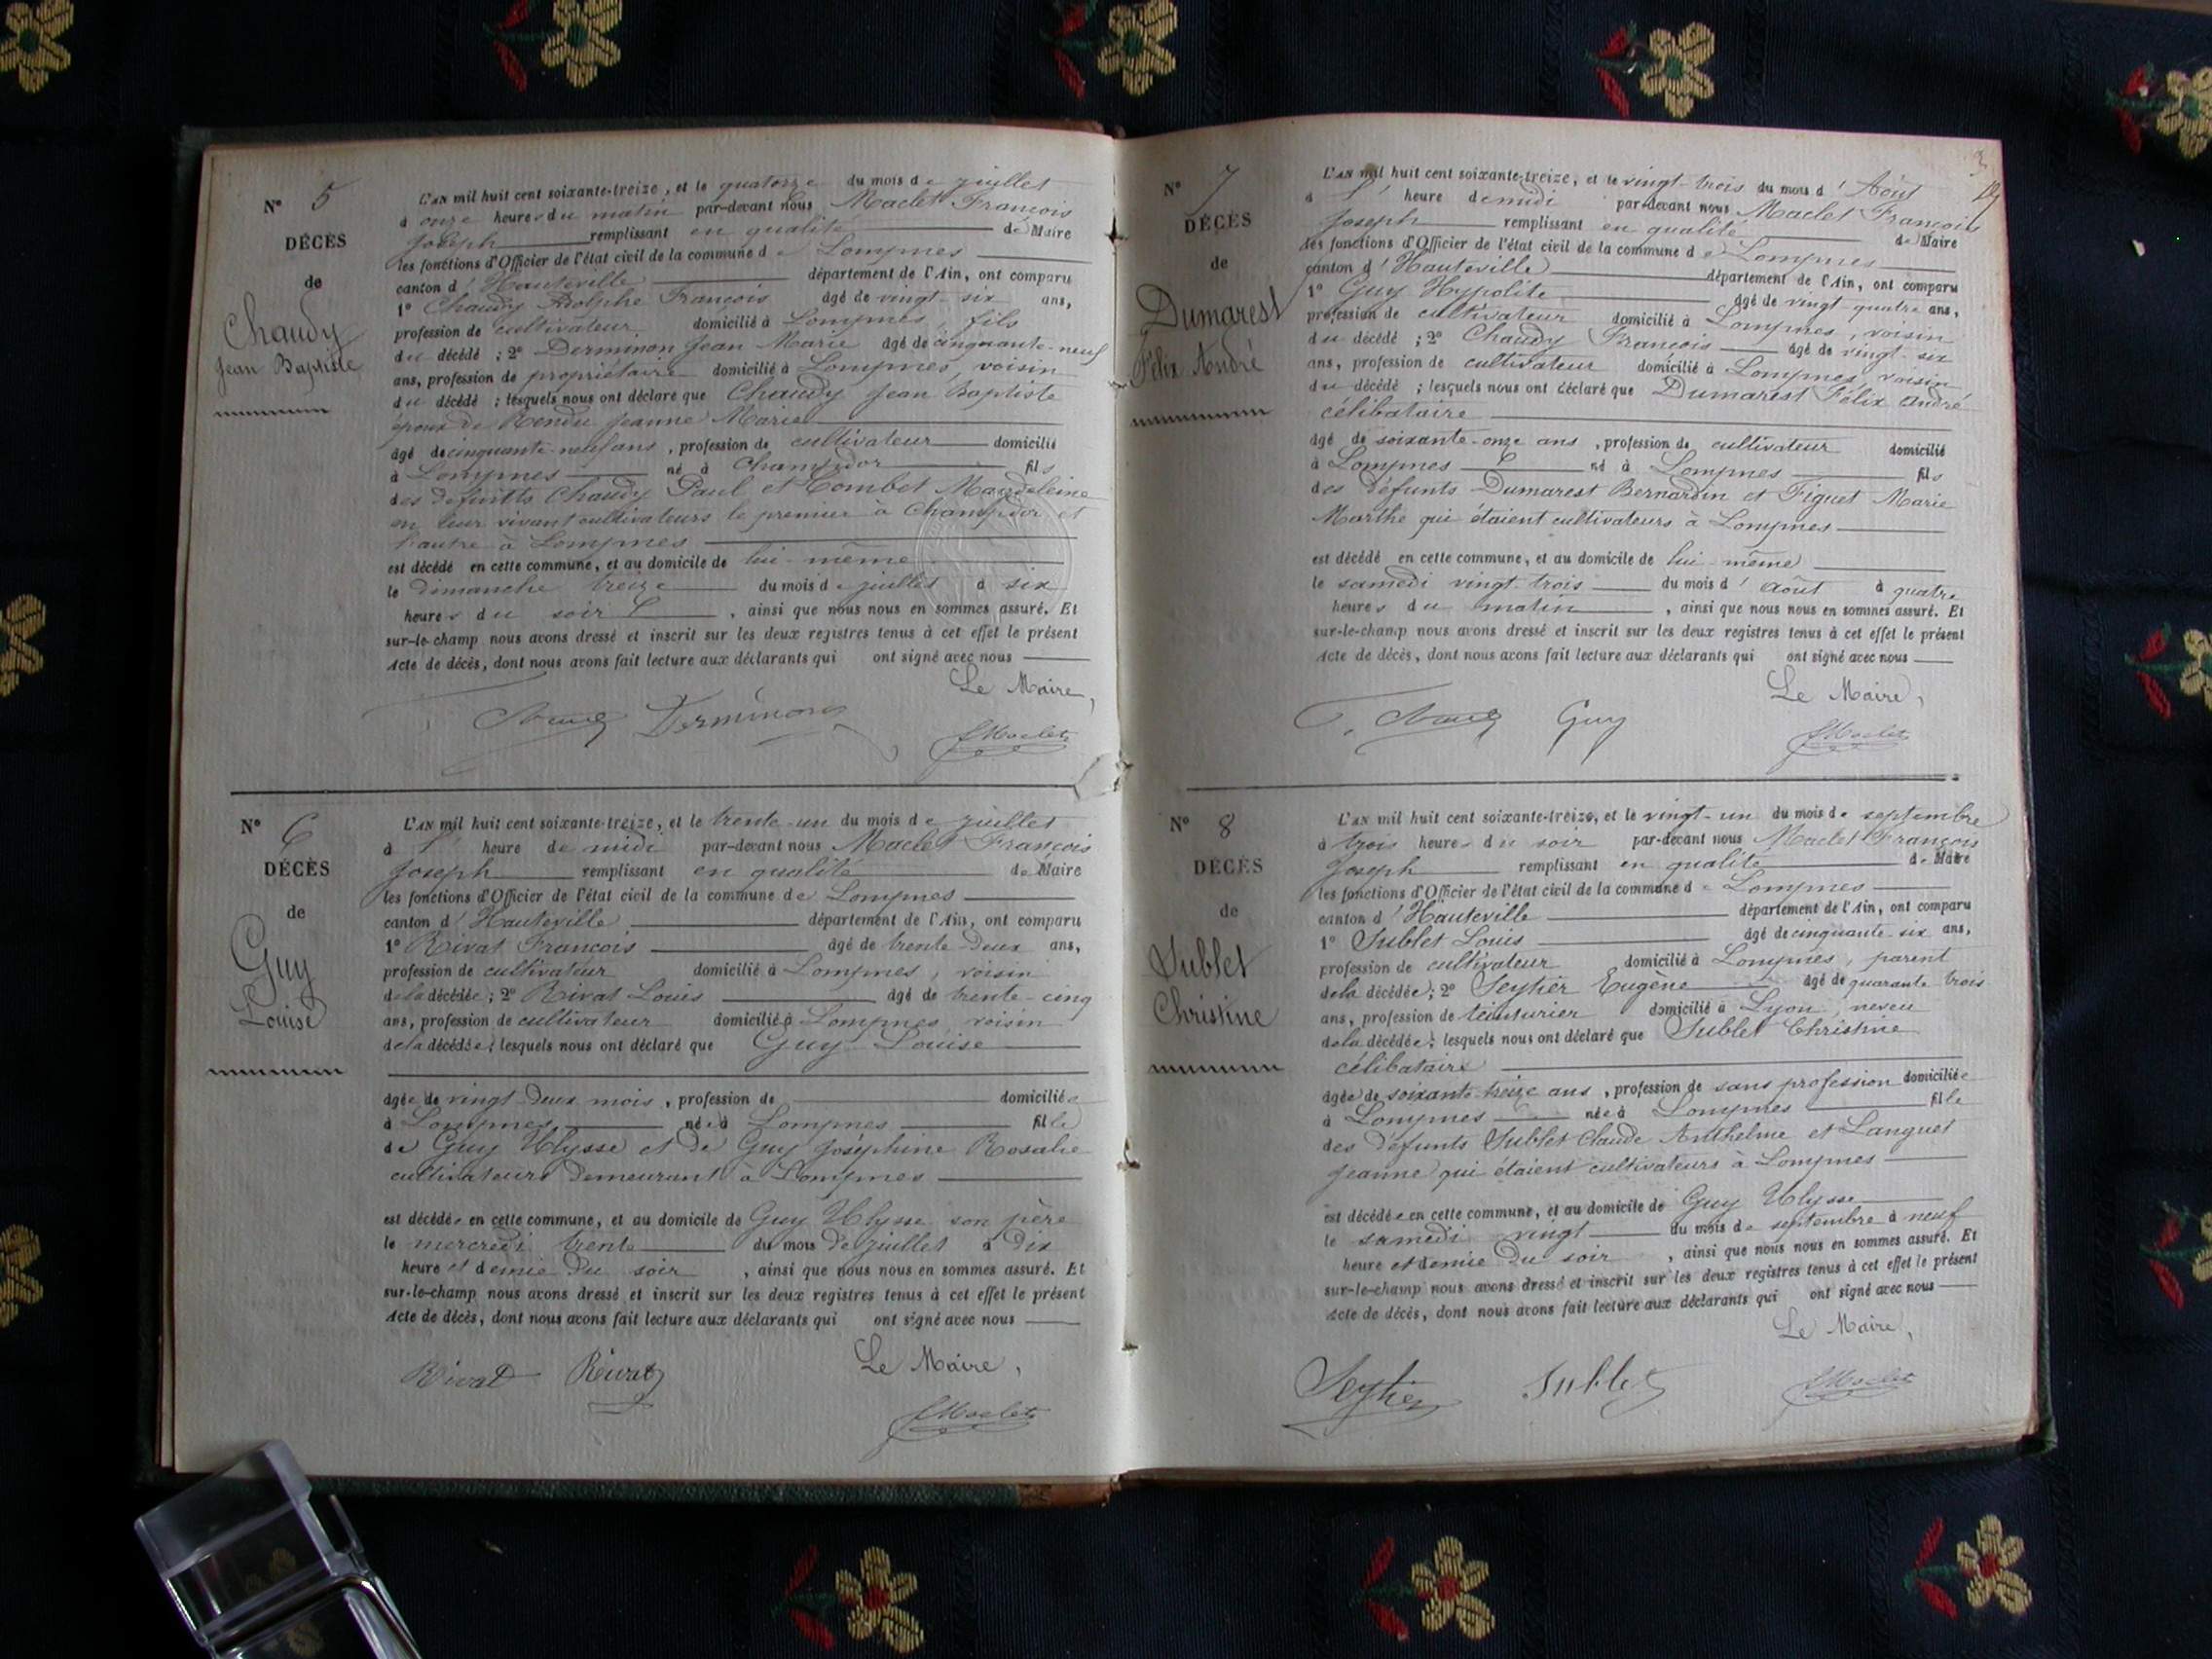 N° 5
DÉCÈS
de
Chaudy
Jean Baptiste
L'AN mil huit cent soixante-treize, et le quatorze du mois de juillet
à onze heures du matin par-devant nous Maclet François
Joseph remplissant en qualité de Maire
les fonctions d'Officier de l'état civil de la commune de Lompnes
canton d'Hauteville département de l'Ain, ont comparu
1° Chaudy Adolphe François âgé de vingt-six ans,
profession de cultivateur domicilié à Lompnes, fils
du décédé ; 2° Derminon Jean Marie âgé de cinquante-neuf
ans, profession de propriétaire domicilié à Lompnes, voisin
du décédé ; lesquels nous ont déclaré que Chaudy Jean Baptiste
époux de Rendu Jeanne Marie
âgé de cinquante-neuf ans, profession de cultivateur domicilié
à Lompnes né à Champdor fils
des défunts Chaudy Paul et Combet Magdeleine
en leur vivant cultivateurs le premier à Champdor et
l'autre à Lompnes
est décédé en cette commune, et au domicile de lui-même
le dimanche treize du mois de juillet à six
heures du soir, ainsi que nous nous en sommes assuré. Et
sur-le-champ nous avons dressé et inscrit sur les deux registres tenus à cet effet le présent
Acte de décès, dont nous avons fait lecture aux déclarants qui ont signé avec nous
Le Maire,
Chaudy Derminon
F Maclet
N° 6
DÉCÈS
de
Guy
Louise
L'AN mil huit cent soixante-treize, et le trente-un du mois de juillet
à l' heure de midi par-devant nous Maclet François
Joseph remplissant en qualité de Maire
les fonctions d'Officier de l'état civil de la commune de Lompnes
canton d'Hauteville département de l'Ain, ont comparu
1° Rivat François âgé de trente-deux ans,
profession de cultivateur domicilié à Lompnes, voisin
de la décédée ; 2° Rivat Louis âgé de trente-cinq
ans, profession de cultivateur domicilié à Lompnes, voisin
de la décédée ; lesquels nous ont déclaré que Guy Louise
âgée de vingt-deux mois, profession de domiciliée
à Lompnes née à Lompnes fille
de Guy Ulysse et de Guy Joséphine Rosalie
cultivateurs demeurant à Lompnes
est décédée en cette commune, et au domicile de Guy Ulysse son père
le mercredi trente du mois de juillet à dix
heure et demie du soir, ainsi que nous nous en sommes assuré. Et
sur-le-champ nous avons dressé et inscrit sur les deux registres tenus à cet effet le présent
Acte de décès, dont nous avons fait lecture aux déclarants qui ont signé avec nous
Rivat Rivat Le Maire,
F Maclet
3
N° 7
DÉCÈS
de
Dumarest
Félix André
L'AN mil huit cent soixante-treize, et le vingt-trois du mois d'Août
à l' heure de midi par-devant nous Maclet François
Joseph remplissant en qualité de Maire
les fonctions d'Officier de l'état civil de la commune de Lompnes
canton d'Hauteville département de l'Ain, ont comparu
1° Guy Hypolite âgé de vingt-quatre ans,
profession de cultivateur domicilié à Lompnes, voisin
du décédé ; 2° Chaudy François âgé de vingt-six
ans, profession de cultivateur domicilié à Lompnes, voisin
du décédé ; lesquels nous ont déclaré que Dumarest Félix André
célibataire
âgé de soixante-onze ans, profession de cultivateur domicilié
à Lompnes né à Lompnes fils
des défunts Dumarest Bernardin et Figuet Marie
Marthe qui étaient cultivateurs à Lompnes
est décédé en cette commune, et au domicile de lui-même
le samedi vingt-trois du mois d'août à quatre
heures du matin, ainsi que nous nous en sommes assuré. Et
sur-le-champ nous avons dressé et inscrit sur les deux registres tenus à cet effet le présent
Acte de décès, dont nous avons fait lecture aux déclarants qui ont signé avec nous
Le Maire,
Chaudy Guy
F Maclet
N° 8
DÉCÈS
de
Sublet
Christine
L'AN mil huit cent soixante-treize, et le vingt-un du mois de septembre
à trois heures du soir par-devant nous Maclet François
Joseph remplissant en qualité de Maire
les fonctions d'Officier de l'état civil de la commune de Lompnes
canton d'Hauteville département de l'Ain, ont comparu
1° Sublet Louis âgé de cinquante-six ans,
profession de cultivateur domicilié à Lompnes, parent
de la décédée ; 2° Seytier Eugène âgé de quarante trois
ans, profession de teinturier domicilié à Lyon, neveu
de la décédée ; lesquels nous ont déclaré que Sublet Christine
célibataire
âgée de soixante-treize ans, profession de sans profession domiciliée
à Lompnes née à Lompnes fille
des défunts Sublet Claude Anthelme et Languet
Jeanne qui étaient cultivateurs à Lompnes
est décédée en cette commune, et au domicile de Guy Ulysse
le samedi vingt du mois de septembre à neuf
heure et demie du soir, ainsi que nous nous en sommes assuré. Et
sur-le-champ nous avons dressé et inscrit sur les deux registres tenus à cet effet le présent
Acte de décès, dont nous avons fait lecture aux déclarants qui ont signé avec nous
Le Maire,
Seytier Sublet F Maclet